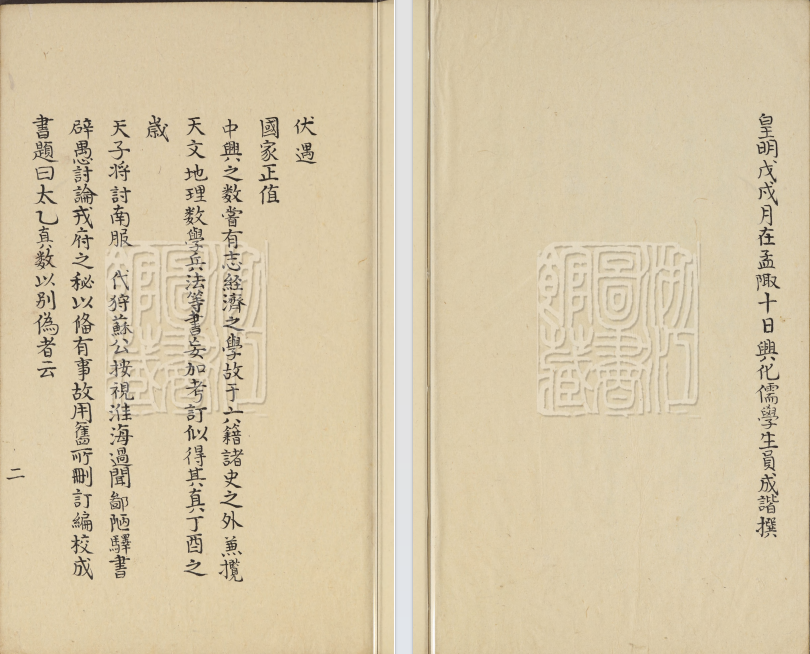 伏遇
國家正值
中興之数嘗有志經濟之學故于六籍諸史之外兼攬
天文地理数學兵法等書妄加考訂似得其真丁酉之
歲
天子将討南服 代狩蘇公按視淮海過聞鄙陋驛書
辟愚討論戎府之秘以俻有事故用舊所刪訂編校成
書題曰太乙真数以別偽者云
二
皇明戊戌月在孟陬十日興化儒學生員成諧撰
浙江
圖書
館藏
浙江
圖書
館藏